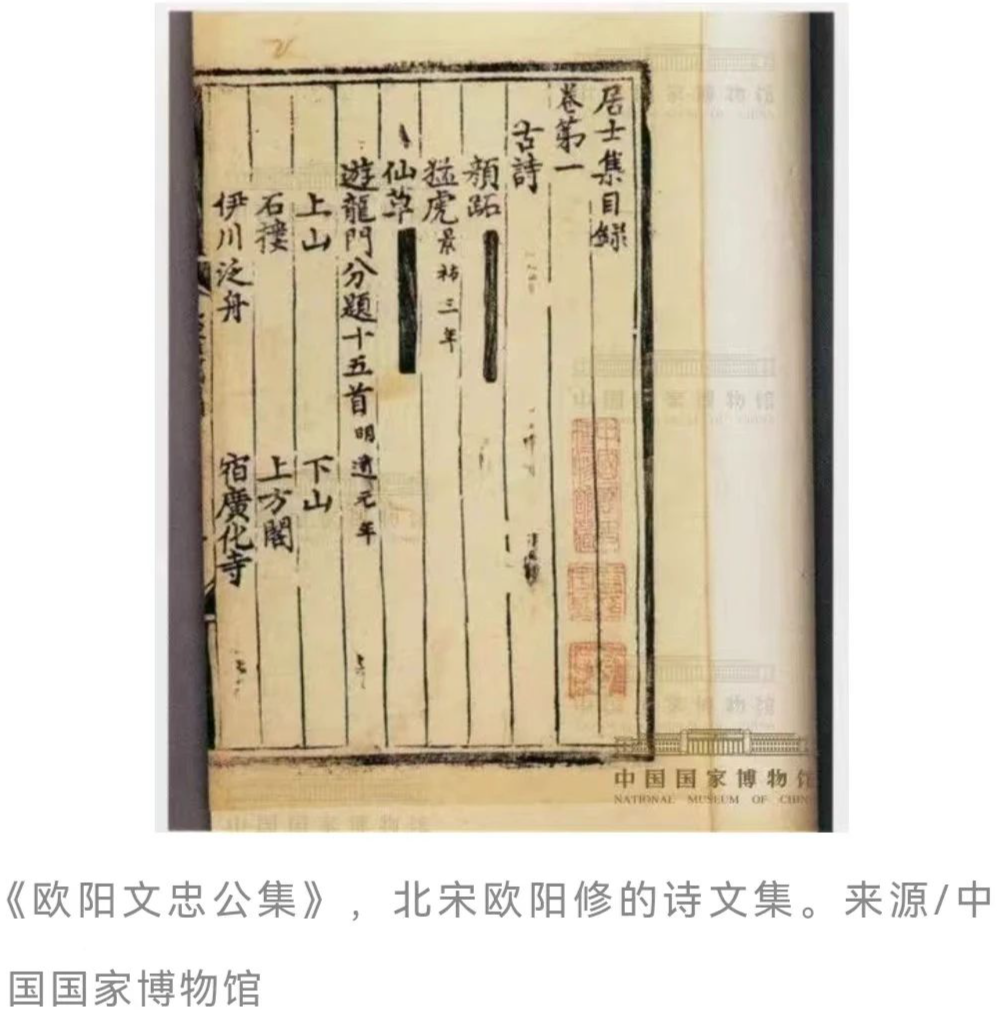 居士集目錄
卷第一
古詩
顏跖
猛虎景祐三年
仙草
遊龍門分題十五首明道元年
上山
下山
石樓
上方閣
伊川泛舟
宿廣化寺
中国国家博物馆
NATIONAL MUSEUM OF CHIN
《欧阳文忠公集》,北宋欧阳修的诗文集。来源/中
国国家博物馆